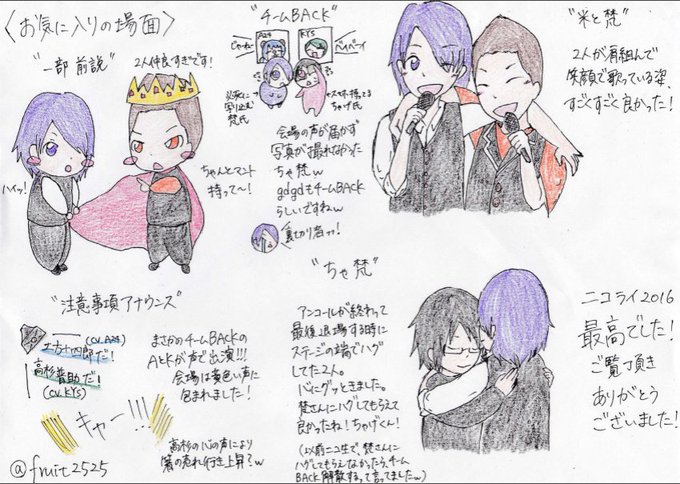 〈お気に入りの場面〉
"一部 前説"
2人仲良すぎです!
ハイッ!
ちゃんとマント
持って~!
"チームBACK"
じゃあねー
A24
KYS
バイバーイ
梵氏
ちゃげ氏
会場の声が届かず
写真が撮れなかった
ちゃ梵w
gdgdもチームBACK
らしいですねw
裏切り者ッ!
"米と梵"
2人が肩組んで
笑顔で歌っている姿、
すごくすごく良かった!
"注意事項アナウンス"
(CV.A24)
土方十四郎だ!
高杉晋助だ!
(CV.KYS)
キャー!!!
まさかのチームBACKの
AとKが声で出演!!!
会場は黄色い声に
包まれました!
高杉の心の声により
箸の売れ行き上昇?w
@fruit2525
"ちゃ梵"
アンコールが終わって
最後退場する時に
ステージの端でハグ
してた2人。
心にグッときました。
梵さんにハグしてもらえて
良かったね!ちゃげくん!
(以前ニコ生で、梵さんに
ハグしてもらえなかったら、チーム
BACK解散するって言ってましたw)
ニコライ2016
最高でした!
ご覧頂き
ありがとう
ございました!